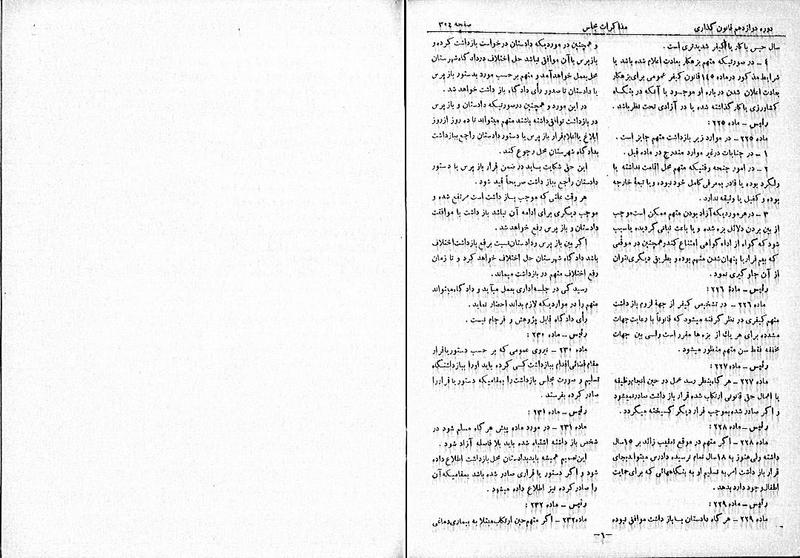 دوره دوازدهم قانون گذاری
مذاکرات مجلس
صفحه ۳۰۴
سال حبس با کار یا کیفر شدیدتری است.
۴ - در صورتیکه متهم بزهکار بعادت اعلام شده باشد یا
شرایط مذکور در ماده ۱۴۵ قانون کیفر عمومی برای بزهکار
بعادت اعلان شدن در باره او موجود یا آنکه در بنگاه
کشاورزی یا کار گذاشته شده یا در آزادی تحت نظر باشد.
رئیس - ماده ۲۲۵ :
ماده ۲۲۵ - در موارد زیر بازداشت متهم جایز است.
۱ - در جنایات در غیر موارد مندرج در ماده قبل.
۲ - در امور جنحه وقتیکه متهم محل اقامت نداشته یا
ولگرد بوده یا قادر به معرفی کامل خود نبوده و یا تبعهٔ خارجه
بوده و کفیل یا وثیقه ندارد.
۳ - در هر موردیکه آزاد بودن متهم ممکن است موجب
از بین بردن دلائل بزه شده و یا باعث تبانی گردیده یا سبب
شود که گواه از اداء گواهی امتناع کند و همچنین در موقعی
که بیم فرار یا پنهان شدن متهم بوده و بطریق دیگری نتوان
از آن جلوگیری نمود.
رئیس - مادهٔ ۲۲۶ :
ماده ۲۲۶ - در تشخیص کیفر از جههٔ لزوم بازداشت
متهم کیفری در نظر گرفته میشود که قانوناً با رعایت جهات
مشدده برای هر یک از بزه‌ها مقرر است ولی بین جهات
مخففه فقط سن متهم منظور میشود.
رئیس - ماده ۲۲۷ :
ماده ۲۲۷ - هر گاه بنظر رسد عمل در حین انجام وظیفه
یا اعمال حق قانونی ارتکاب شده قرار بازداشت صادر نمیشود
و اگر صادر شده بموجب قرار دیگر گسیخته میگردد.
رئیس - ماده ۲۲۸ :
ماده ۲۲۸ - اگر متهم در موقع تعقیب زائد بر ۱۵ سال
داشته ولی هنوز به ۱۸ سال تمام نرسیده دادرس میتواند بجای
قرار بازداشت امر به تسلیم او به بنگاههائی که برای حمایت
اطفال وجود دارد بدهد.
رئیس - ماده ۲۲۹ :
ماده ۲۲۹ - هر گاه دادستان با بازداشت موافق نبوده
و همچنین در موردیکه دادستان درخواست بازداشت کرده و
بازپرس با آن موافق نباشد حل اختلاف در دادگاه شهرستان
محل بعمل خواهد آمد و متهم بر حسب مورد بدستور بازپرس
یا دادستان تا صدور رأی دادگاه بازداشت خواهد شد.
در این مورد و همچنین در صورتیکه دادستان و بازپرس
در بازداشت توافق داشته باشند متهم میتواند تا ده روز از روز
ابلاغ یا اعلام قرار بازپرس یا دستور دادستان راجع ببازداشت
بدادگاه شهرستان محل رجوع کند.
این حق شکایت باید در ضمن قرار بازپرس یا دستور
دادستان راجع ببازداشت صریحاً قید شود.
هر وقت علتی که موجب بازداشت است مرتفع شده و
موجب دیگری برای ادامه آن نباشد بازداشت با موافقت
دادستان و بازپرس رفع خواهد شد.
اگر بین بازپرس و دادستان نسبت برفع بازداشت اختلاف
باشد دادگاه شهرستان حل اختلاف خواهد کرد و تا زمان
رفع اختلاف متهم در بازداشت میماند.
رسیدگی در جلسه اداری بعمل میآید و دادگاه میتواند
متهم را در مواردیکه لازم بداند احضار نماید.
رأی دادگاه قابل پژوهش و فرجام نیست.
رئیس - ماده ۲۳۰ :
ماده ۲۳۰ - نیروی عمومی که بر حسب دستور یا قرار
مقام قضائی اقدام ببازداشت کسی کرده باید او را ببازداشتگاه
تسلیم و صورت مجلس بازداشت را بمقامیکه دستور یا قرار را
صادر کرده بفرستد.
رئیس - ماده ۲۳۱ :
ماده ۲۳۱ - در مورد ماده پیش هر گاه مسلم شود در
شخص بازداشته اشتباه شده باید بلا فاصله آزاد شود.
این تصمیم همیشه باید بدادستان محل بازداشت اطلاع داده
شود و اگر دستور یا قراری صادر شده باشد بمقامیکه آن
را صادر کرده نیز اطلاع داده میشود.
رئیس - ماده ۲۳۲ :
ماده ۲۳۲ - اگر متهم حین ارتکاب مبتلا به بیماری دماغی
-۱-